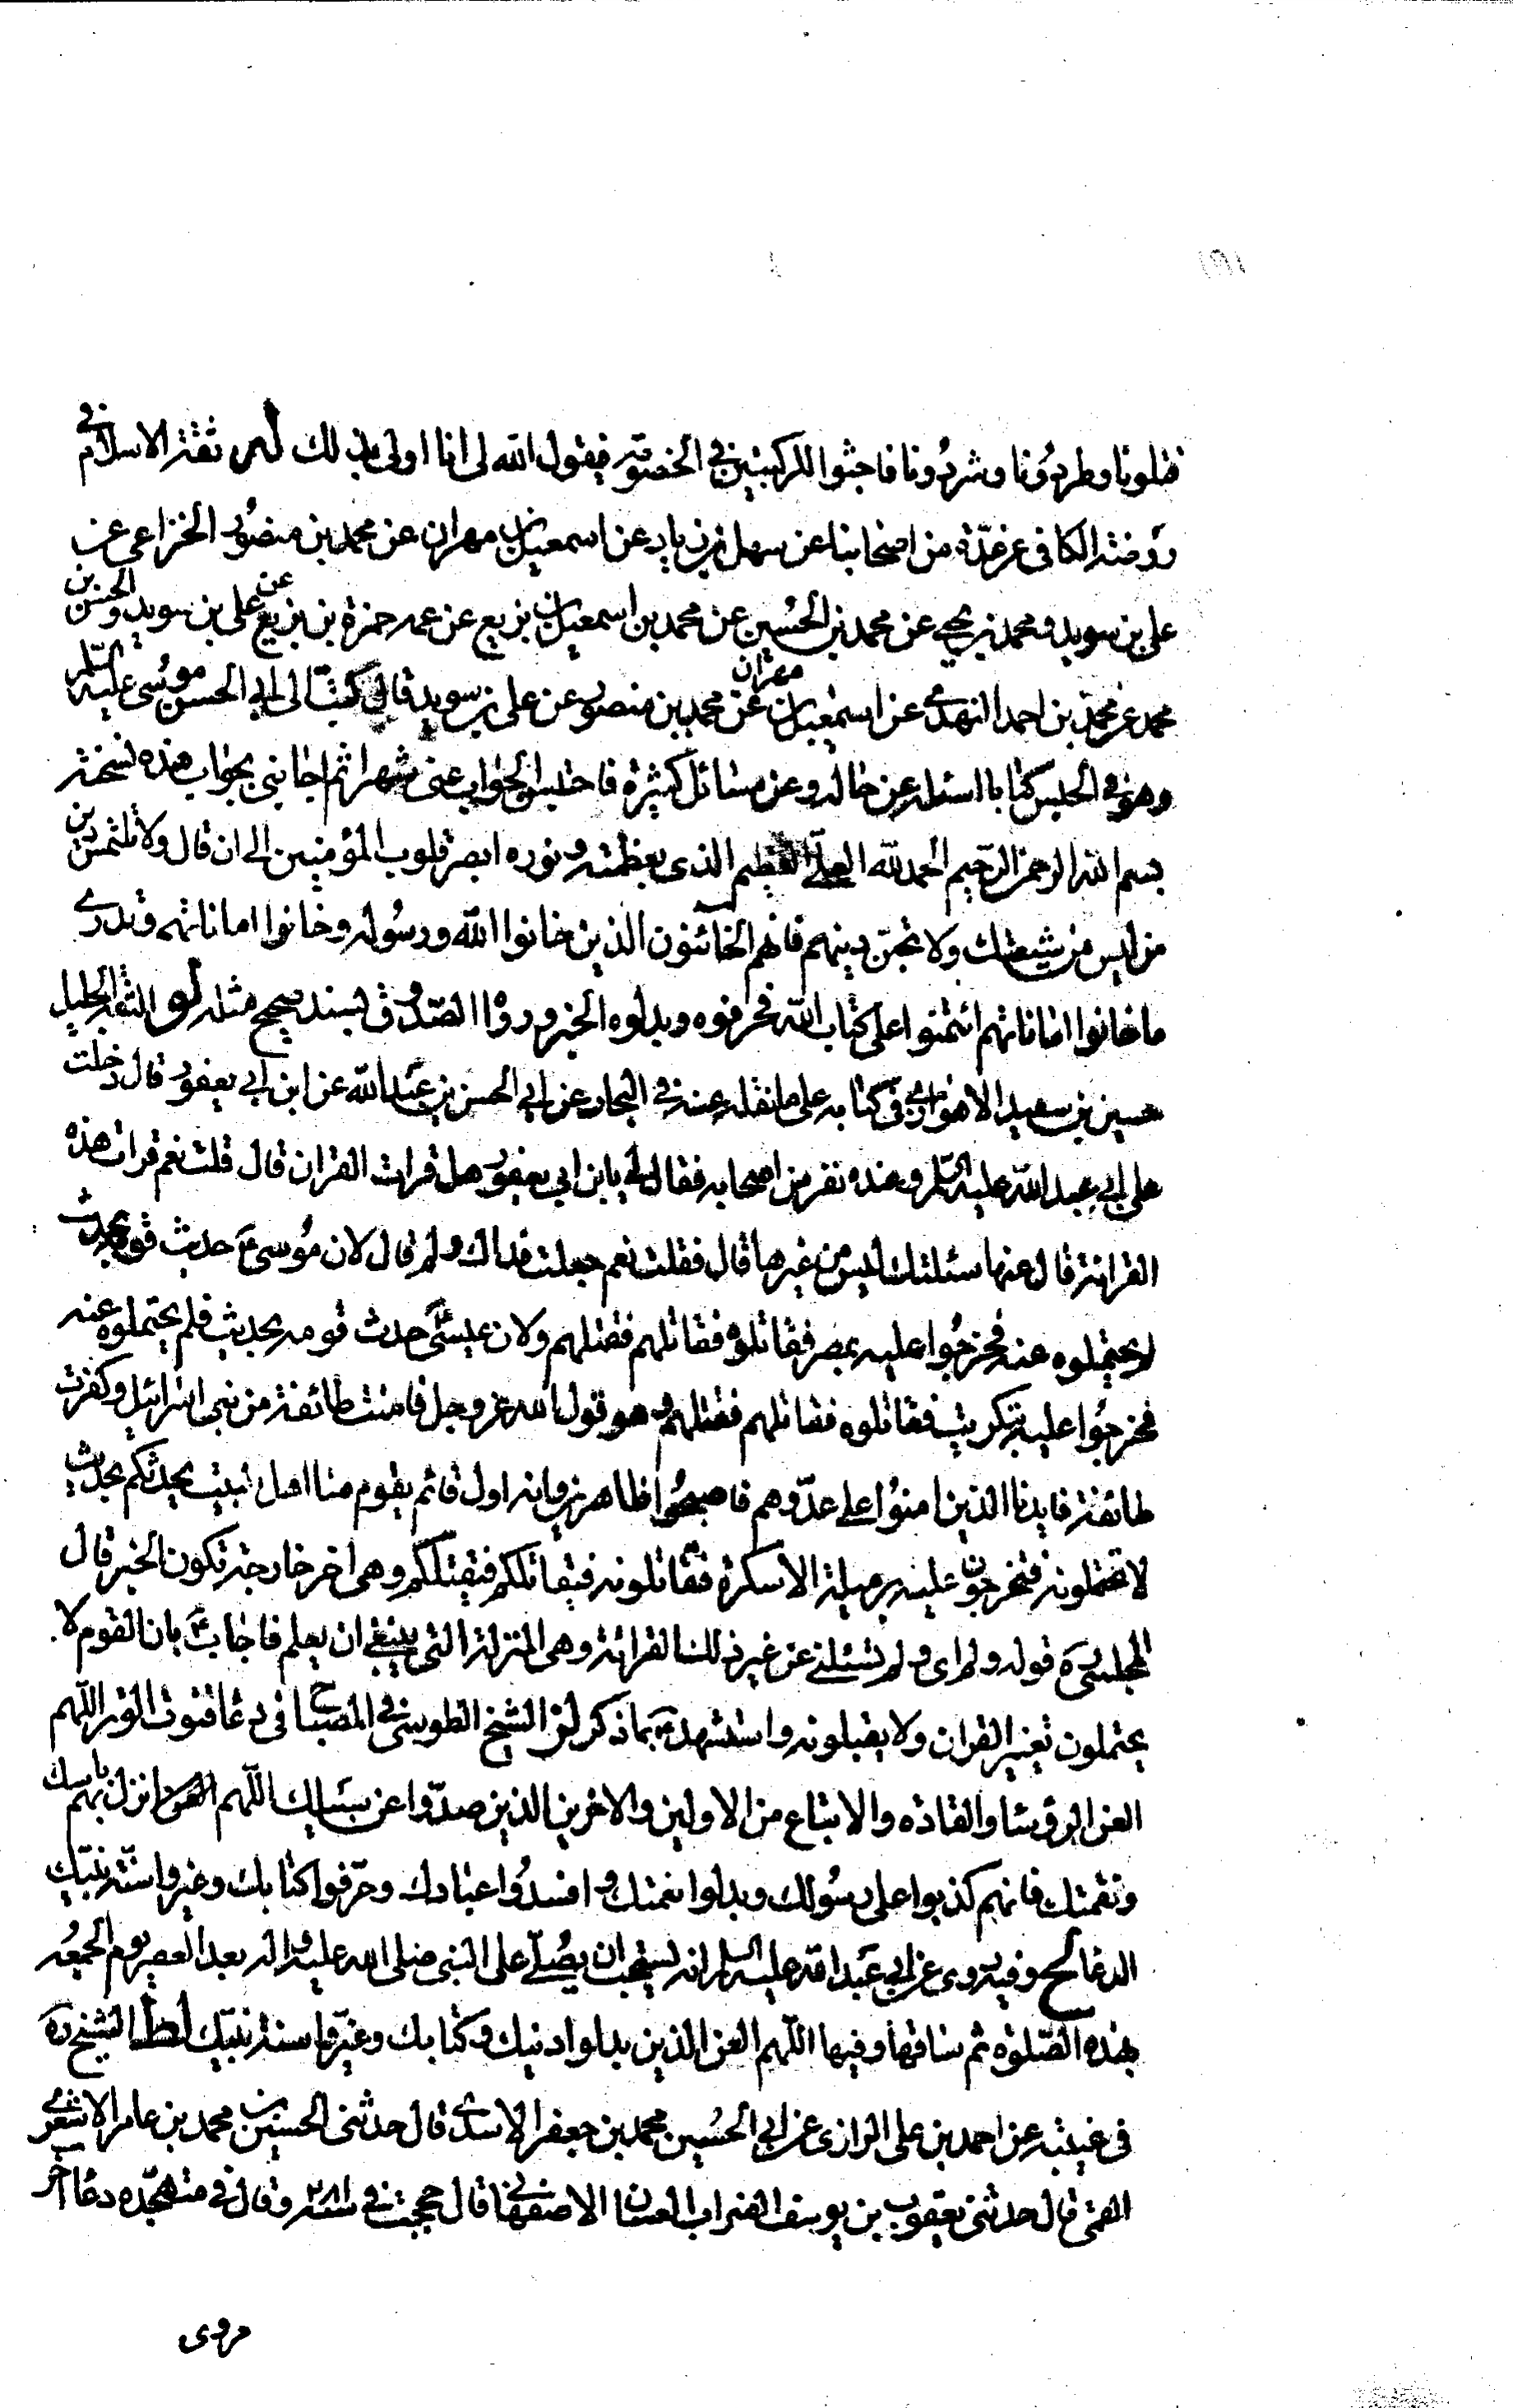 قتلونا وطردونا وشردونا فاجثوا للركبتين فى الخصومة فيقول الله لى انا اولى بذلك ثقة الاسلام فى
روضة الكافى عن عدة من اصحابنا عن سهل بن زياد عن اسمعيل بن مهران عن محمد بن منصور الخزاعى عن
على بن سويد ومحمد بن يحيى عن محمد بن الحسين عن محمد بن اسمعيل بن بزيع عن عمه حمزة بن بزيع عن على بن سويد والحسن بن
محمد عن محمد بن احمد النهدى عن اسمعيل بن مهران عن محمد بن منصور عن على بن سويد قال كتبت الى ابى الحسن موسى عليه السلم
وهو فى الحبس كتابا اسئله عن حاله وعن مسائل كثيرة فاحتبس الجواب عنى شهرا ثم اجابنى بجواب هذه نسخته
بسم الله الرحمن الرحيم الحمد لله العلى العظيم الذى بعظمته ونوره ابصر قلوب المؤمنين الى ان قال ولا تلتمس دين
من ليس من شيعتك ولا تحبن دينهم فانهم الخائنون الذين خانوا الله ورسوله وخانوا اماناتهم وتدرى
ما خانوا اماناتهم ائتمنوا على كتاب الله فحرفوه وبدلوه الخبر ورواه الصدوق بسند صحيح مثله الثقة الجليل
حسين بن سعيد الاهوازى فى كتابه على ما نقله عنه فى البحار عن ابى الحسن بن عبد الله عن ابن ابى يعفور قال دخلت
على ابى عبد الله عليه السلم وعنده نفر من اصحابه فقال لى يا بن ابى يعفور هل قرات القران قال قلت نعم قرات هذه
القرائة قال عنها سئلتك ليس من غيرها قال فقلت نعم جعلت فداك ولم قال لان موسى ع حدث قومه بحديث
لم يحتملوه عنه فخرجوا عليه بمصر فقاتلوه فقاتلهم فقتلهم ولان عيسى ع حدث قومه بحديث فلم يحتملوه عنه
فخرجوا عليه بتكريت فقاتلوه فقاتلهم فقتلهم وهو قول الله عز وجل فامنت طائفة من بنى اسرائيل وكفرت
طائفة فايدنا الذين امنوا على عدوهم فاصبحوا ظاهرين وانه اول قائم يقوم منا اهل البيت يحدثكم بحديث
لا تحتملونه فتخرجون عليه برميلة الاسكرة فتقاتلونه فيقاتلكم فيقتلكم وهى اخر خارجة تكون الخبر قال
المجلسى ره قوله ولم اى ولم تسئلنى عن غير ذلك القرائة وهى المنزلة التى ينبغى ان يعلم فاجاب ع بان القوم لا
يحتملون تغيير القران ولا يقبلونه واستشهد ع بما ذكر الشيخ الطوسى فى المصباح فى دعا قنوت الوتر اللهم
العن الرؤسا والقادة والاتباع من الاولين والاخرين الذين صدوا عن سبيلك اللهم انزل بهم باسك
ونقمتك فانهم كذبوا على رسولك وبدلوا نعمتك وافسدوا عبادك وحرفوا كتابك وغيروا سنة نبيك
الدعا لح وفيه روى عن ابى عبد الله عليه السلم انه يستحب ان يصلى على النبى صلى الله عليه واله بعد العصر يوم الجمعه
بهذه الصلوة ثم ساقها وفيها اللهم العن الذين بدلوا دينك وكتابك وغيروا سنة نبيك الشيخ ره
فى غيبته عن احمد بن على الرازى عن ابى الحسين محمد بن جعفر الاسدى قال حدثنى الحسين بن محمد بن عامر الاشعرى
القمى قال حدثنى يعقوب بن يوسف الضراب الغسانى الاصفهانى قال حججت فى سنة ٢٨١ وقال فى متهجده دعا اخر
مروى